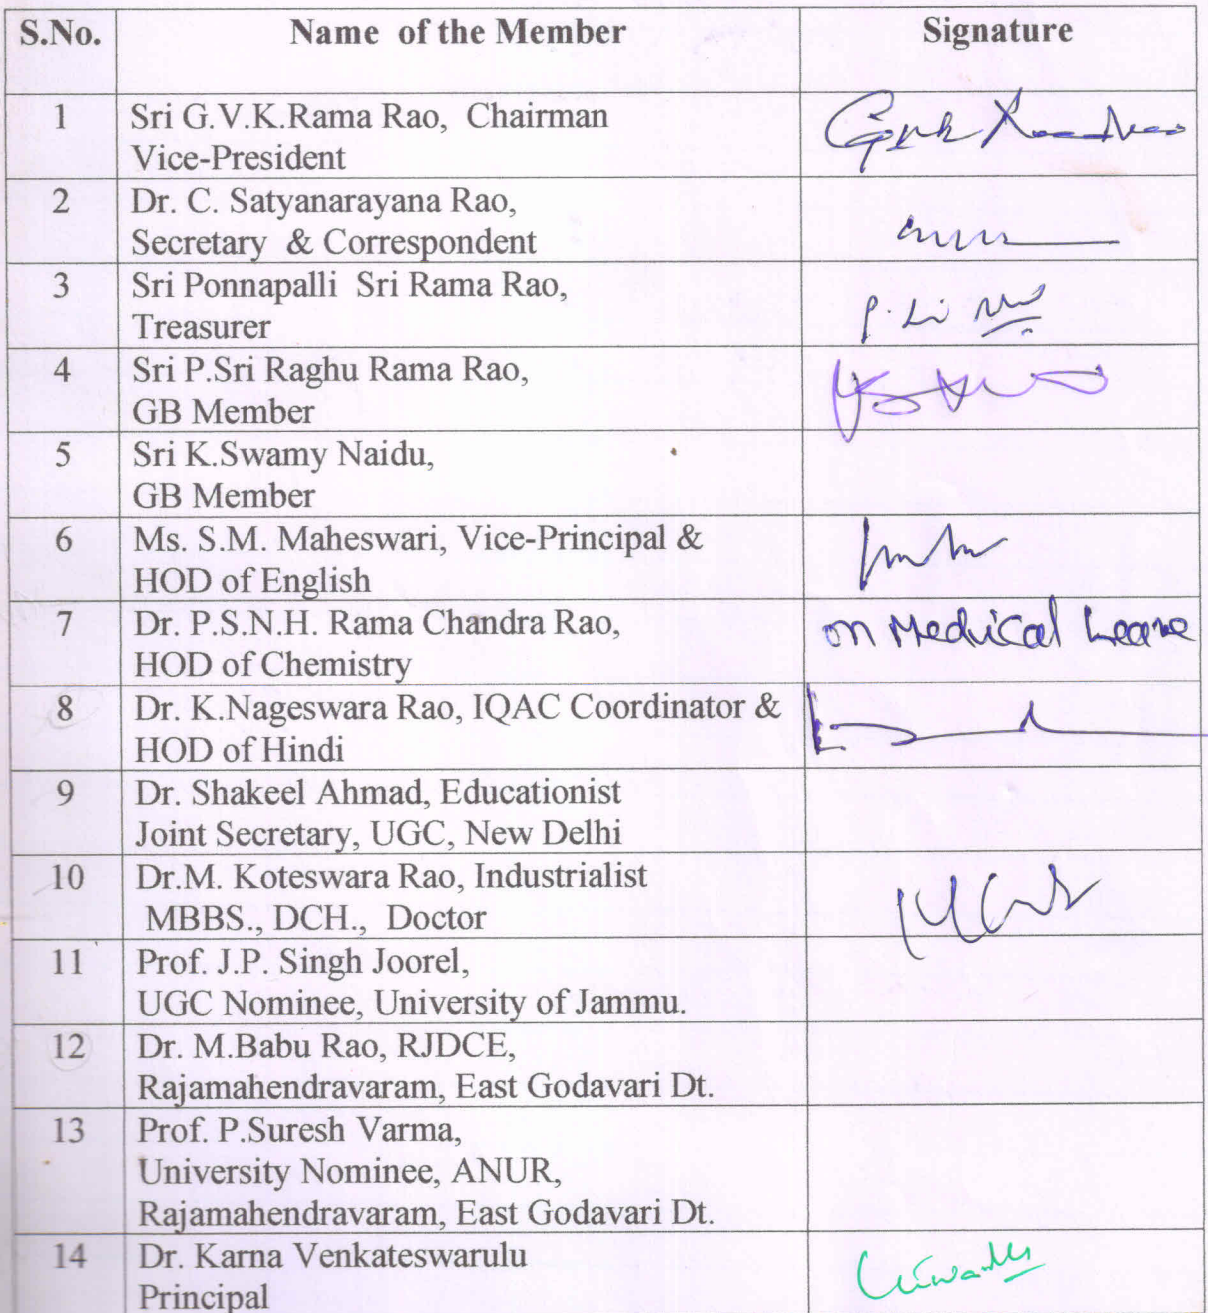 S.No. Name of the Member Signature
1 Sri G.V.K.Rama Rao, Chairman
Vice-President
2 Dr. C. Satyanarayana Rao,
Secretary & Correspondent
3 Sri Ponnapalli Sri Rama Rao,
Treasurer
4 Sri P.Sri Raghu Rama Rao,
GB Member
5 Sri K.Swamy Naidu,
GB Member
6 Ms. S.M. Maheswari, Vice-Principal &
HOD of English
7 Dr. P.S.N.H. Rama Chandra Rao, on Medical Leave
HOD of Chemistry
8 Dr. K.Nageswara Rao, IQAC Coordinator &
HOD of Hindi
9 Dr. Shakeel Ahmad, Educationist
Joint Secretary, UGC, New Delhi
10 Dr.M. Koteswara Rao, Industrialist
MBBS., DCH., Doctor
11 Prof. J.P. Singh Joorel,
UGC Nominee, University of Jammu.
12 Dr. M.Babu Rao, RJDCE,
Rajamahendravaram, East Godavari Dt.
13 Prof. P.Suresh Varma,
University Nominee, ANUR,
Rajamahendravaram, East Godavari Dt.
14 Dr. Karna Venkateswarulu
Principal